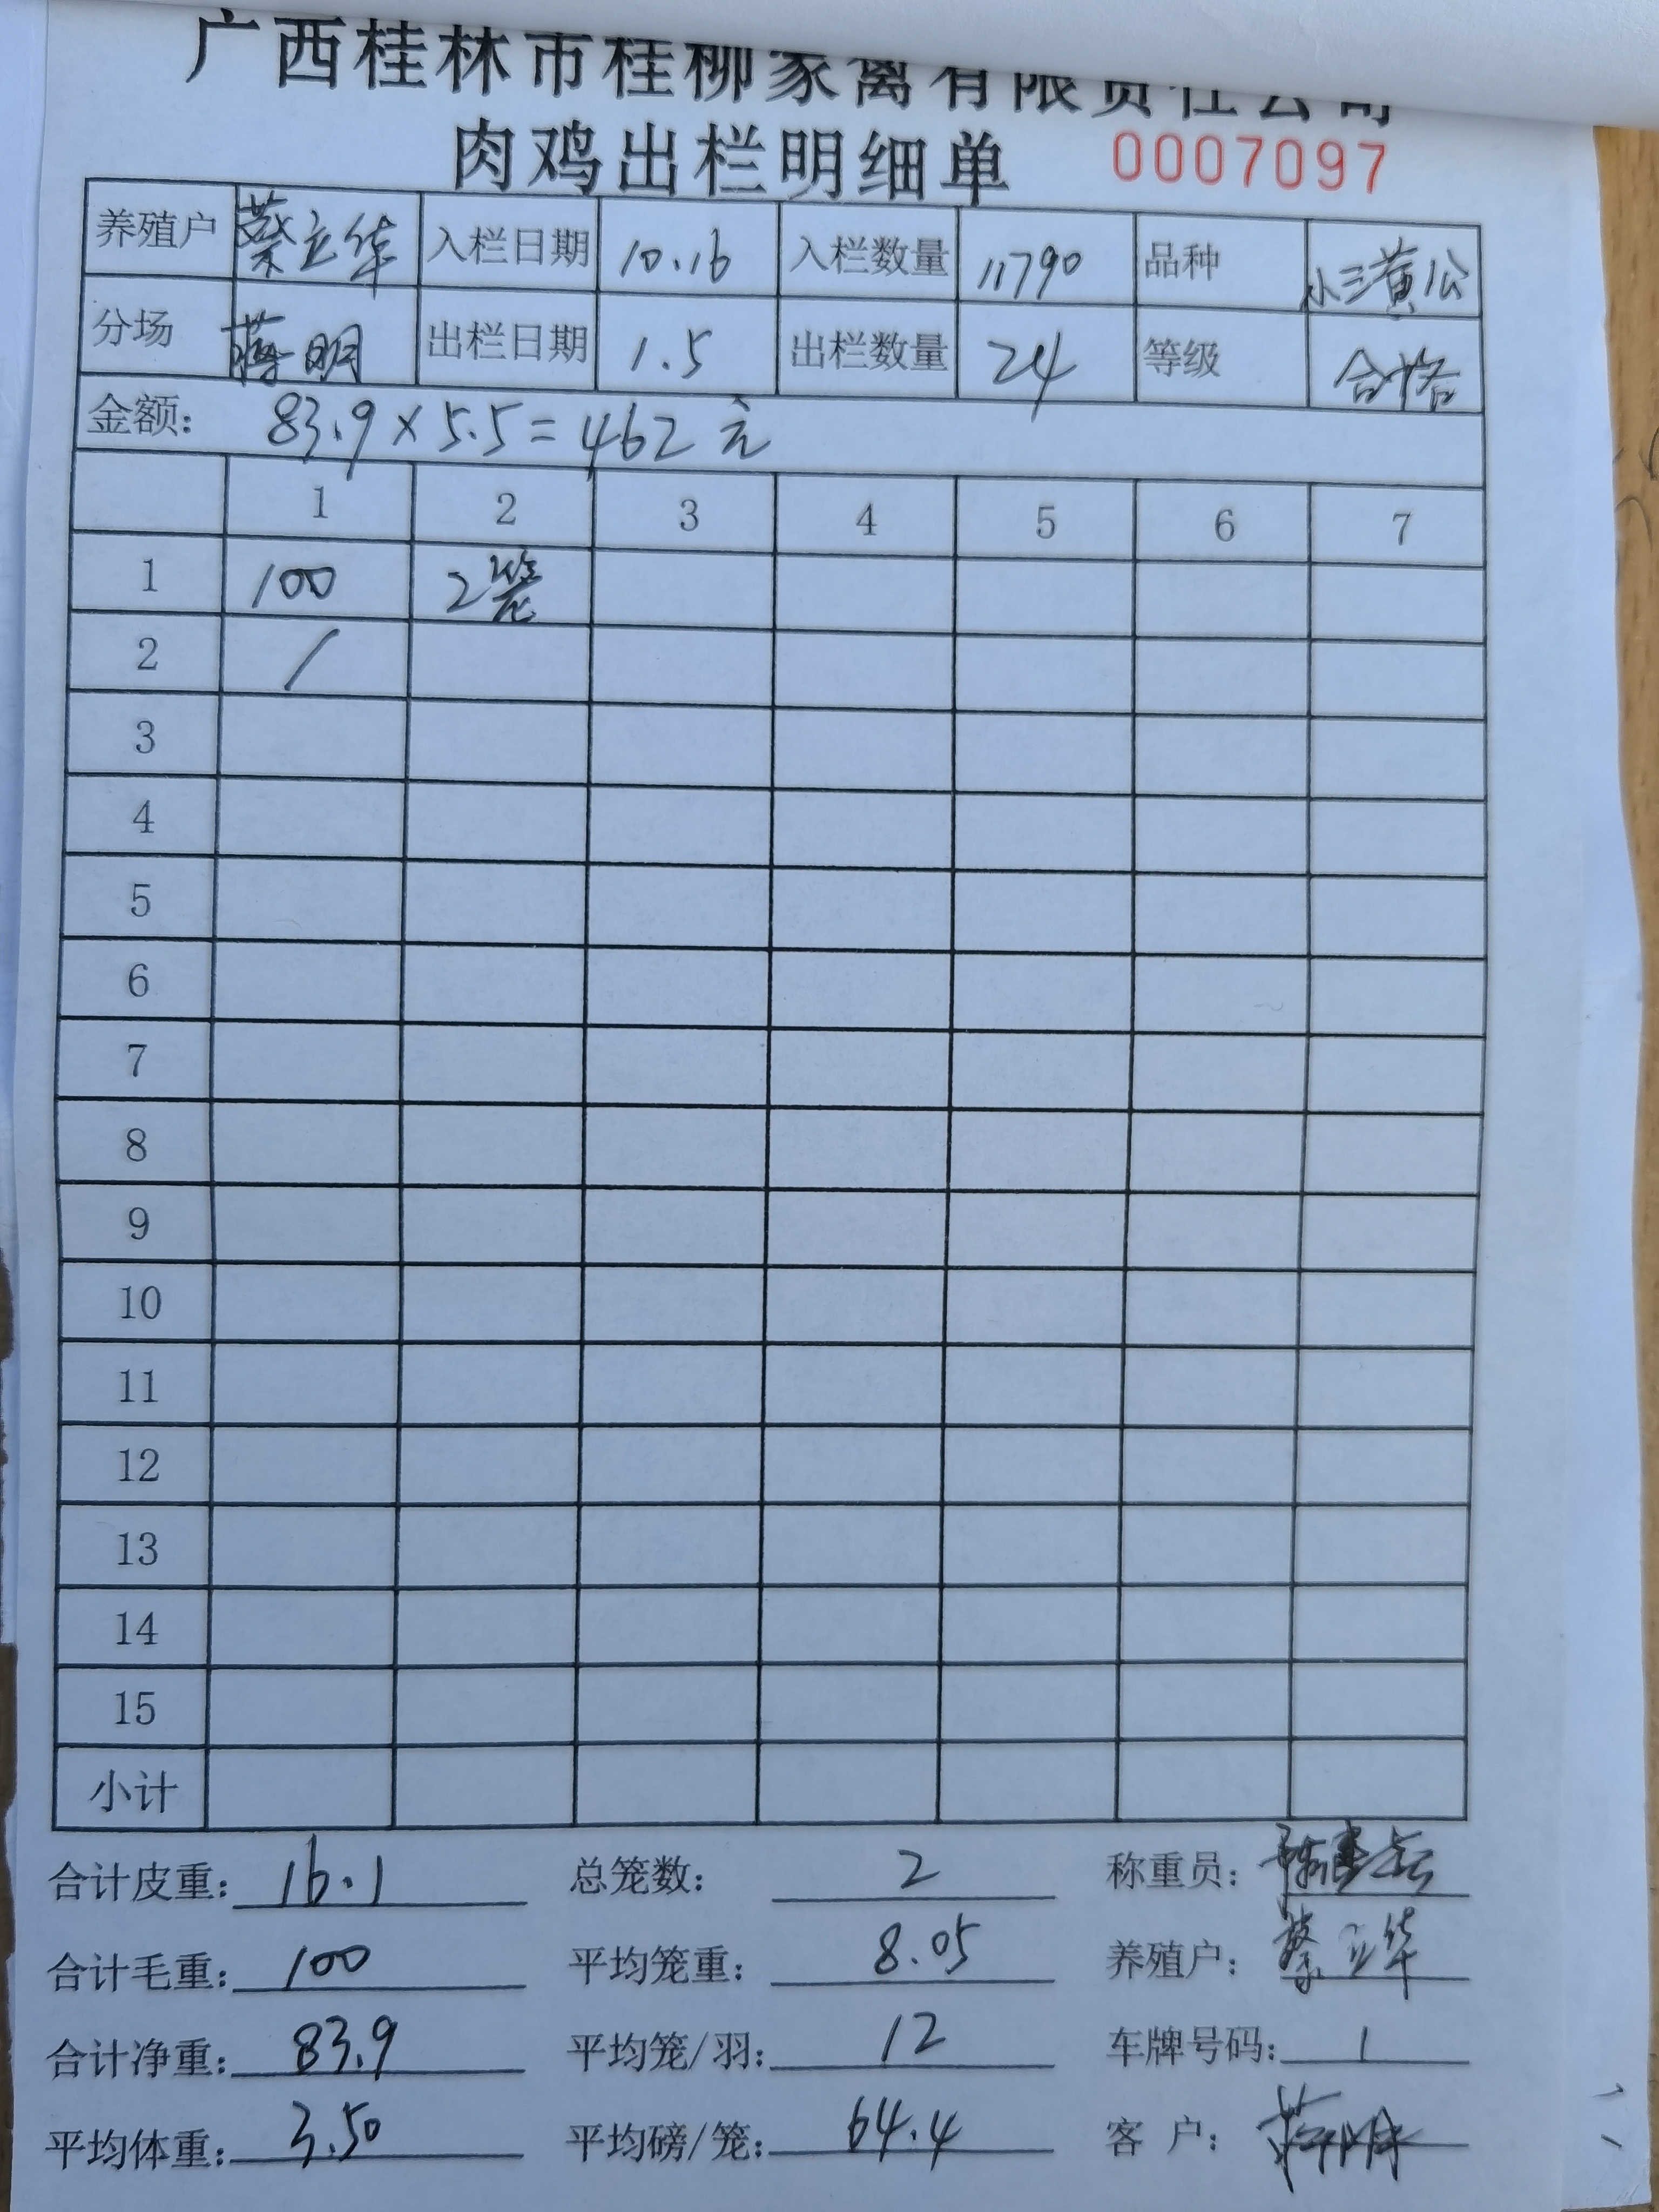 广西桂林市桂柳家禽有限责任公司
肉鸡出栏明细单 0007097
养殖户 蔡立华 入栏日期 10.16 入栏数量 11790 品种 小三黄公
分场 蒋明 出栏日期 1.5 出栏数量 24 等级 合格
金额: 83.9×5.5=462元
1 2 3 4 5 6 7
1 100 2笼
2 /
3
4
5
6
7
8
9
10
11
12
13
14
15
小计
合计皮重: 16.1 总笼数: 2 称重员:
合计毛重: 100 平均笼重: 8.05 养殖户: 蔡立华
合计净重: 83.9 平均笼/羽: 12 车牌号码: 1
平均体重: 3.50 平均磅/笼: 64.4 客户: